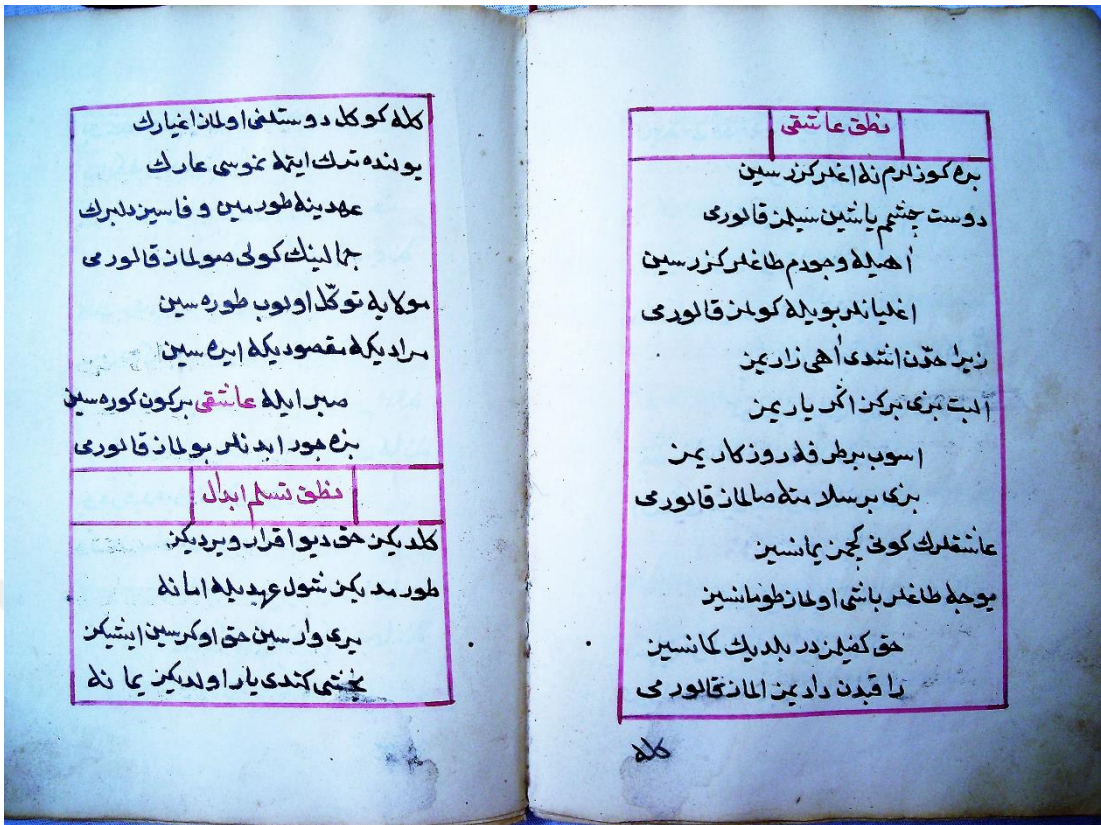 نطق عاشقى
بره كوزلرم نه اغلر كزرسين
دوست چشم ياشين سيلمز قالورمى
اهيله وجودم طاغلر كزرسين
اغليانلر بويله كولمز قالورمى
زيرا حدّن اشدى اهى زاريمز
البت بزى بركز اكر ياريمز
اسوب برطرفه روزكاريمز
بزى برسلامته صالماز قالورمى
عاشقلرك كونى كچمز يمانسيز
يوجه طاغلر باشى اولماز طومانسيز
حق كفيلمزدر بلديك كمانسيز
راقيدن داديمز الماز قالورمى
كله
كله كوكل دوستلغى اولماز اغيارك
يولنده ترك ايتمه نموسى عارك
عهدينه طورمين وفاسيز دلبرك
جمالينك كولى صولماز قالورمى
مولايه توكّل اولوب طوره سين
مراديكه مقصوديكه ايره سين
صبر ايله عاشقى بركون كوره سين
بزه جور ايدنلر بولماز قالورمى
نطق تسلم ابدال
كلديكز حق ديو اقرار ويرديكز
طورمديكز شول عهديله امانه
برى وارسين حق اوكرسين ايشيكز
يخشى كندى يار اولديكز يمانه